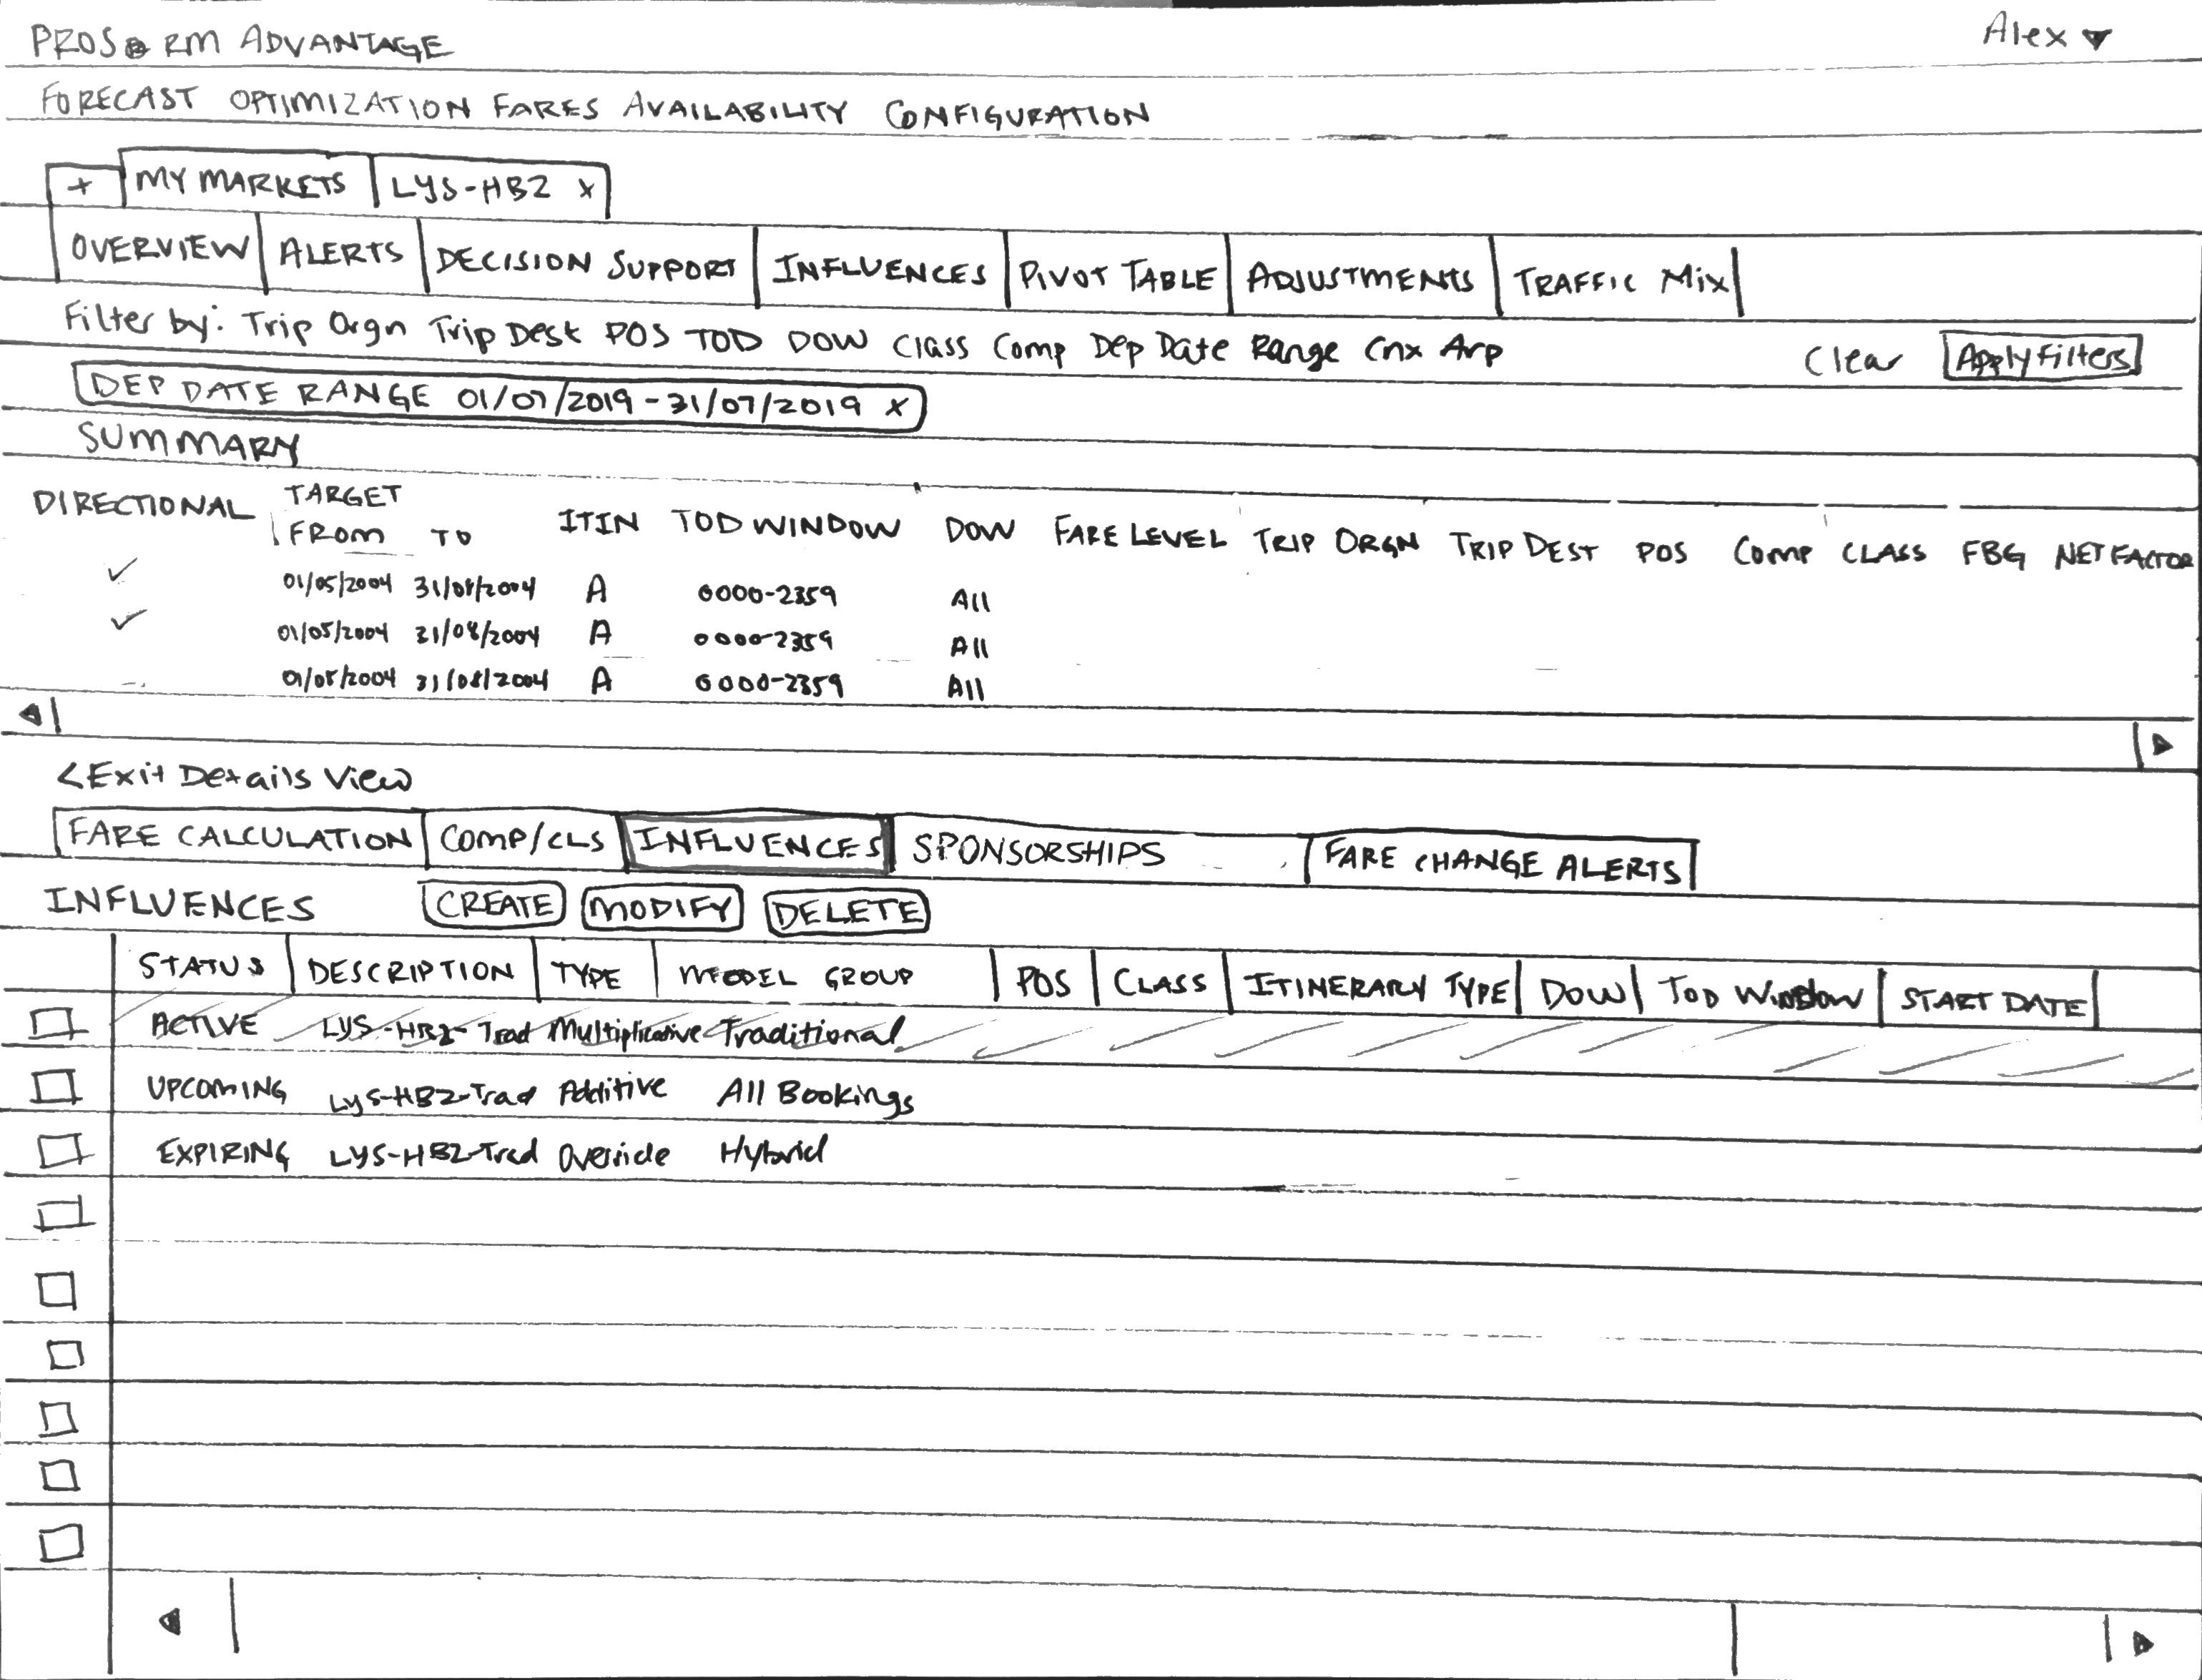 PROS RM ADVANTAGE Alex
FORECAST OPTIMIZATION FARES AVAILABILITY CONFIGURATION
+ MY MARKETS LYS-HBZ x
OVERVIEW ALERTS DECISION SUPPORT INFLUENCES PIVOT TABLE ADJUSTMENTS TRAFFIC Mix
Filter by: Trip Orgn Trip Dest POS TOD DOW Class Comp Dep Date Range Cnx Arp Clear Apply Filters
DEP DATE RANGE 01/07/2019 - 31/07/2019 x
SUMMARY
DIRECTIONAL TARGET
FROM TO ITIN TOD WINDOW DOW FARE LEVEL TRIP ORGN TRIP DEST POS Comp CLASS FBG NET FACTOR
01/05/2004 31/08/2004 A 0000-2359 All
01/05/2004 31/08/2004 A 0000-2359 All
01/05/2004 31/08/2004 A 0000-2359 All
<Exit Details View
FARE CALCULATION COMP/CLS INFLUENCES SPONSORSHIPS FARE CHANGE ALERTS
INFLUENCES CREATE MODIFY DELETE
STATUS DESCRIPTION TYPE MODEL GROUP POS CLASS ITINERARY TYPE DOW TOD Window START DATE
ACTIVE LYS-HBZ-Trad Multiplicative Traditional
UPCOMING LYS-HBZ-Trad Additive All Bookings
EXPIRING LYS-HBZ-Trad Override Hybrid